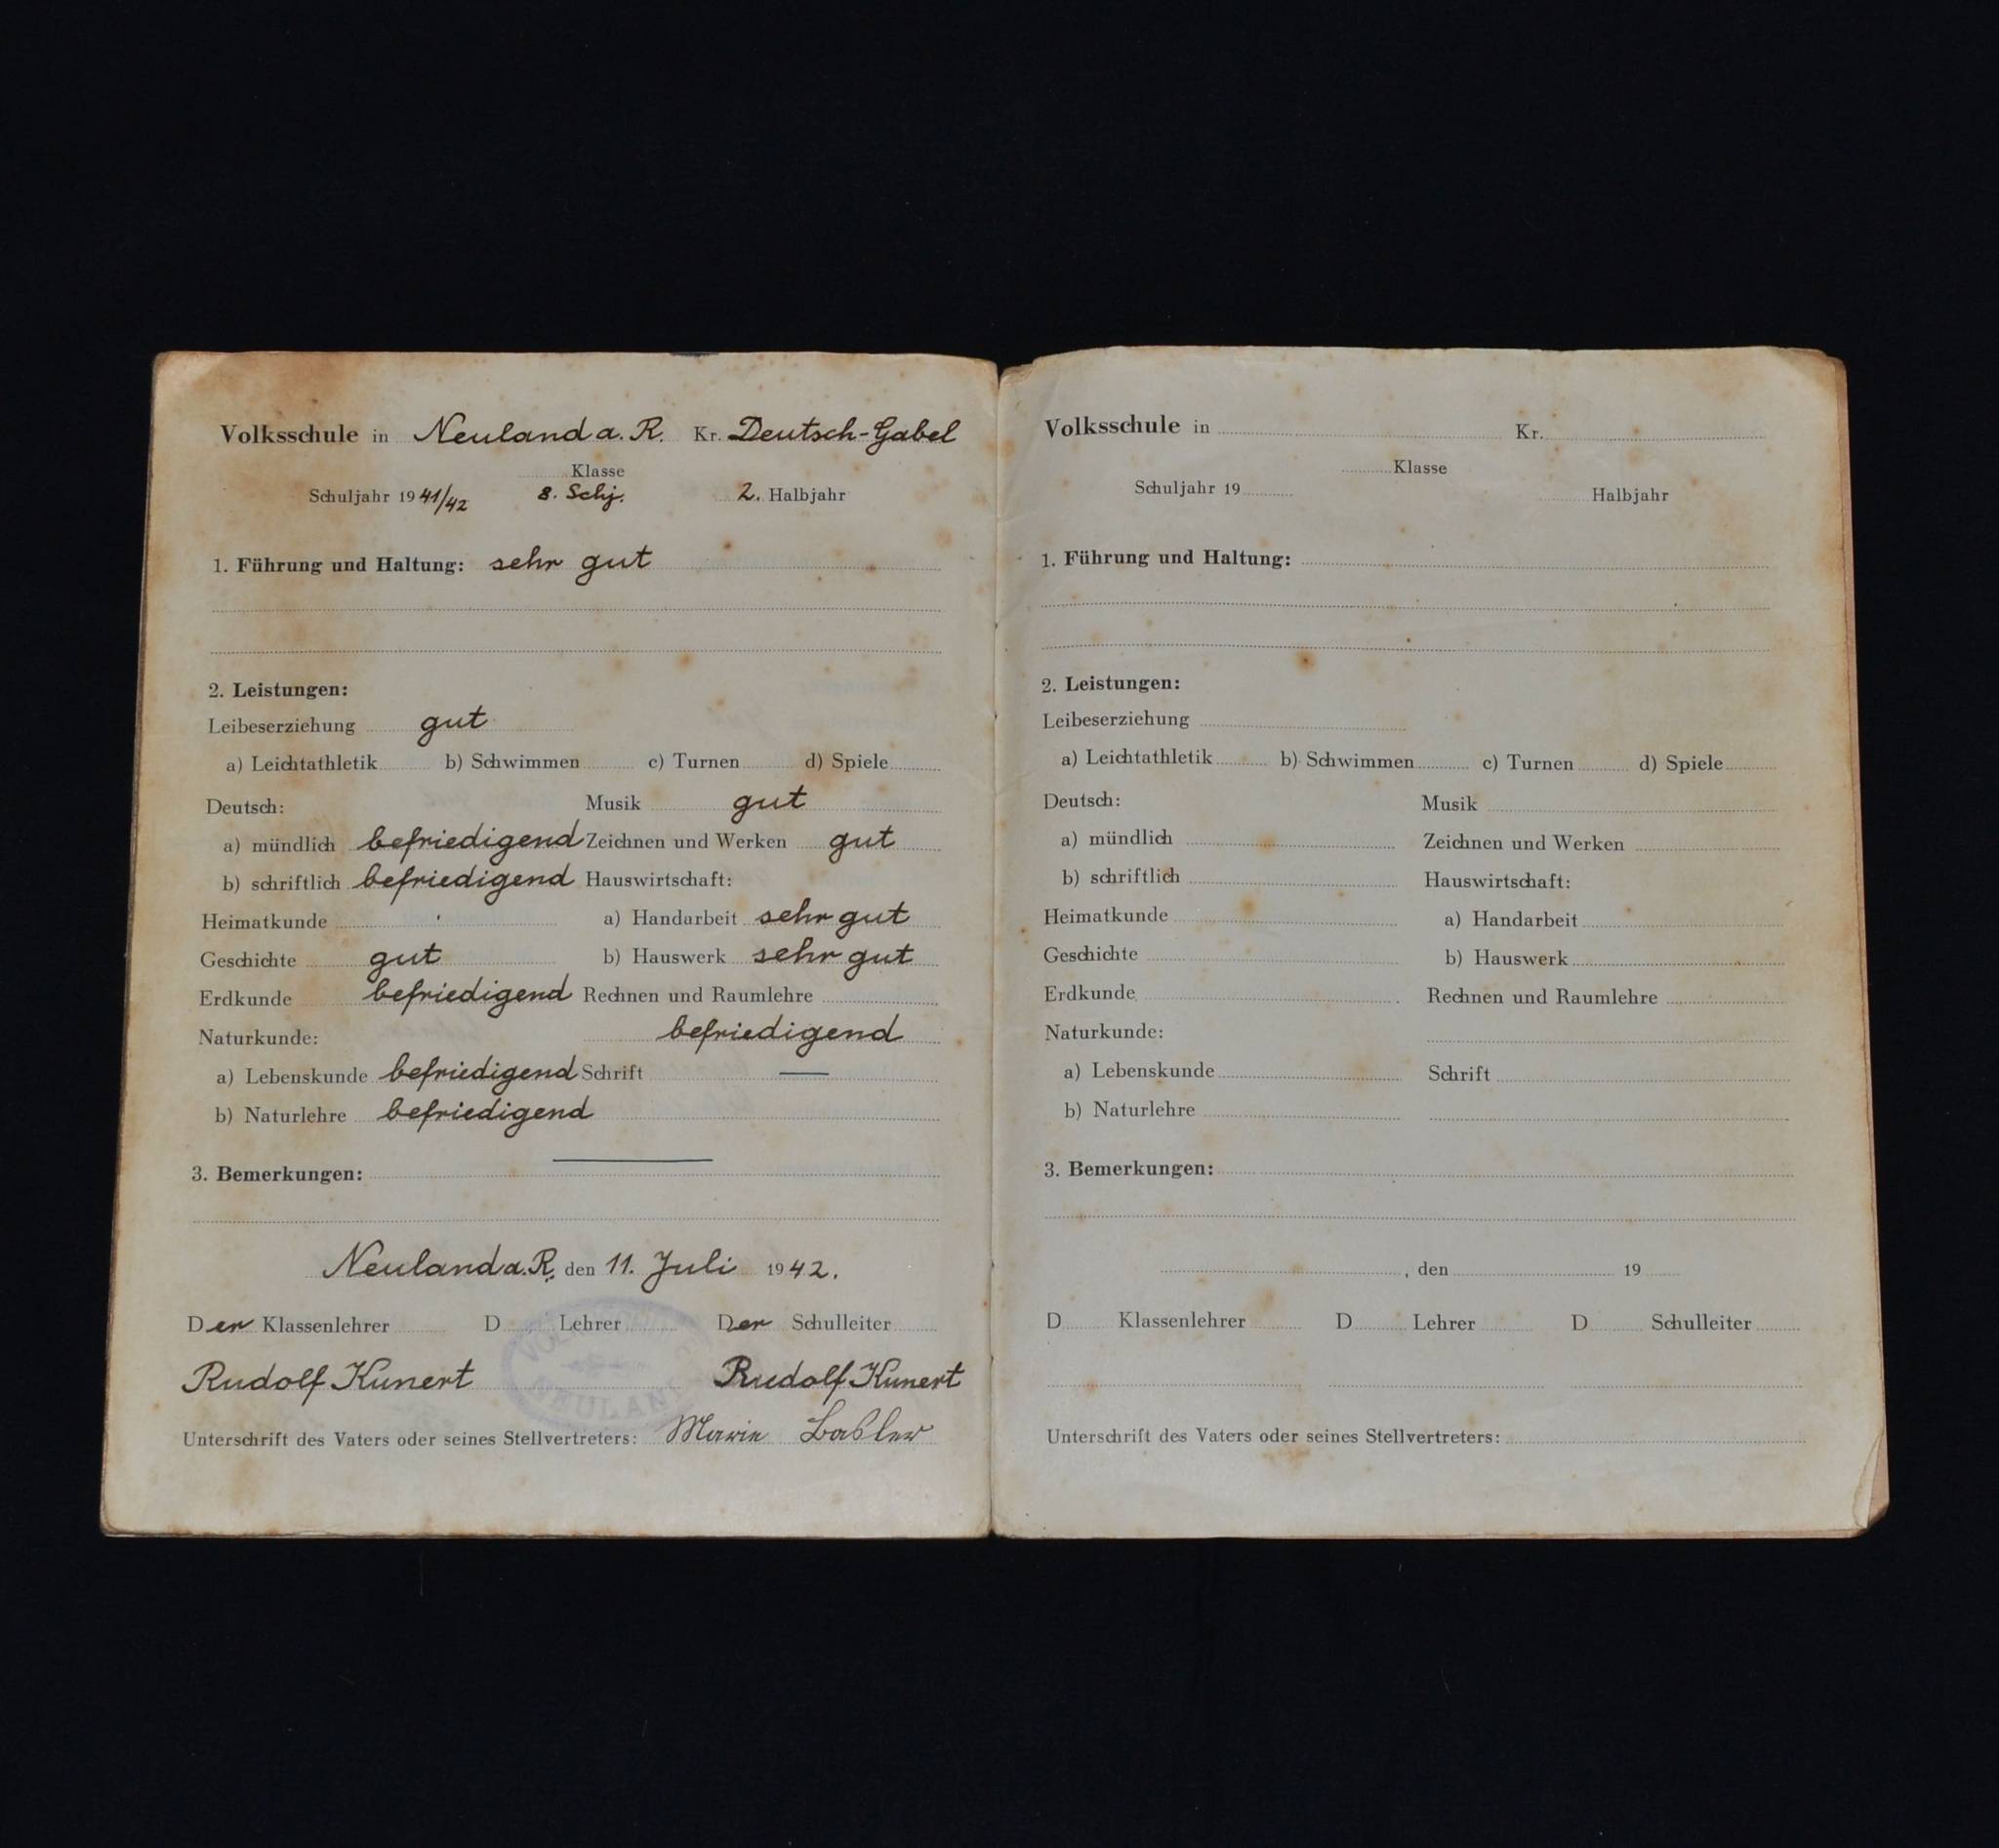 Volksschule in Neuland a. R. Kr. Deutsch-Gabel
Klasse
Schuljahr 1941/42 8. Schj. 2. Halbjahr
1. Führung und Haltung: sehr gut
2. Leistungen:
Leibeserziehung gut
a) Leichtathletik b) Schwimmen c) Turnen d) Spiele
Deutsch: Musik gut
a) mündlich befriedigend Zeichnen und Werken gut
b) schriftlich befriedigend Hauswirtschaft:
Heimatkunde a) Handarbeit sehr gut
Geschichte gut b) Hauswerk sehr gut
Erdkunde befriedigend Rechnen und Raumlehre
Naturkunde: befriedigend
a) Lebenskunde befriedigend Schrift —
b) Naturlehre befriedigend
3. Bemerkungen:
Neuland a. R., den 11. Juli 1942.
Der Klassenlehrer D Lehrer Der Schulleiter
Rudolf Kunert Rudolf Kunert
Unterschrift des Vaters oder seines Stellvertreters: Marie
Volksschule in Kr.
Klasse
Schuljahr 19 Halbjahr
1. Führung und Haltung:
2. Leistungen:
Leibeserziehung
a) Leichtathletik b) Schwimmen c) Turnen d) Spiele
Deutsch: Musik
a) mündlich Zeichnen und Werken
b) schriftlich Hauswirtschaft:
Heimatkunde a) Handarbeit
Geschichte b) Hauswerk
Erdkunde Rechnen und Raumlehre
Naturkunde:
a) Lebenskunde Schrift
b) Naturlehre
3. Bemerkungen:
, den 19
D Klassenlehrer D Lehrer D Schulleiter
Unterschrift des Vaters oder seines Stellvertreters: